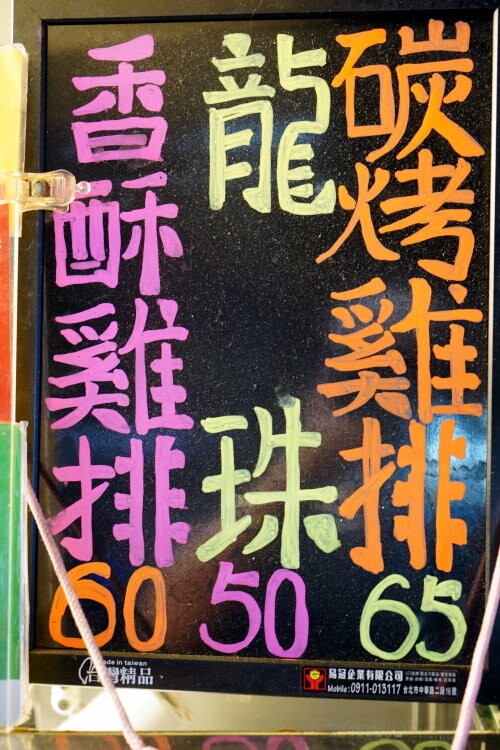 碳烤雞排
65
龍珠
50
香酥雞排
60
made in taiwan
台灣精品
鳥冠企業有限公司
Mobile: 0911-013117 台北市中華路二段16號